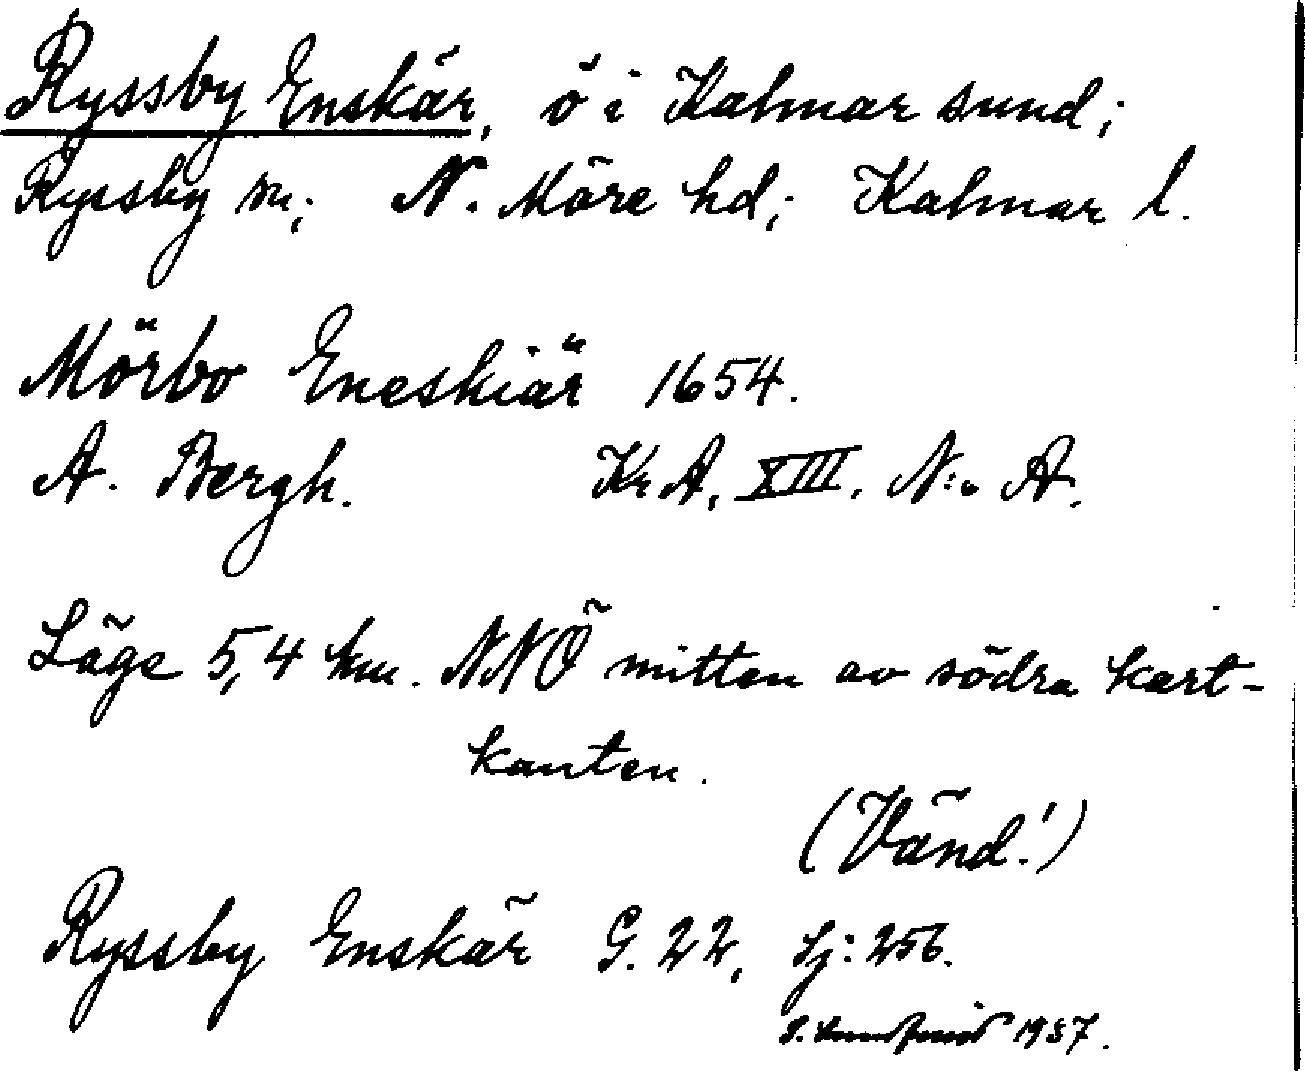 Ryssby Enskär, ö i Kalmar sund;
Ryssby sn; N. Möre hd; Kalmar l.
Mörbo Eneskiär 1654.
A. Bergh. Kr A, XIII. N:o A.
Läge 5,4 km. NNÖ mitten av södra kart-
kanten.
(Vänd!)
Ryssby Enskär G. 22, Sj: 256.
1937.